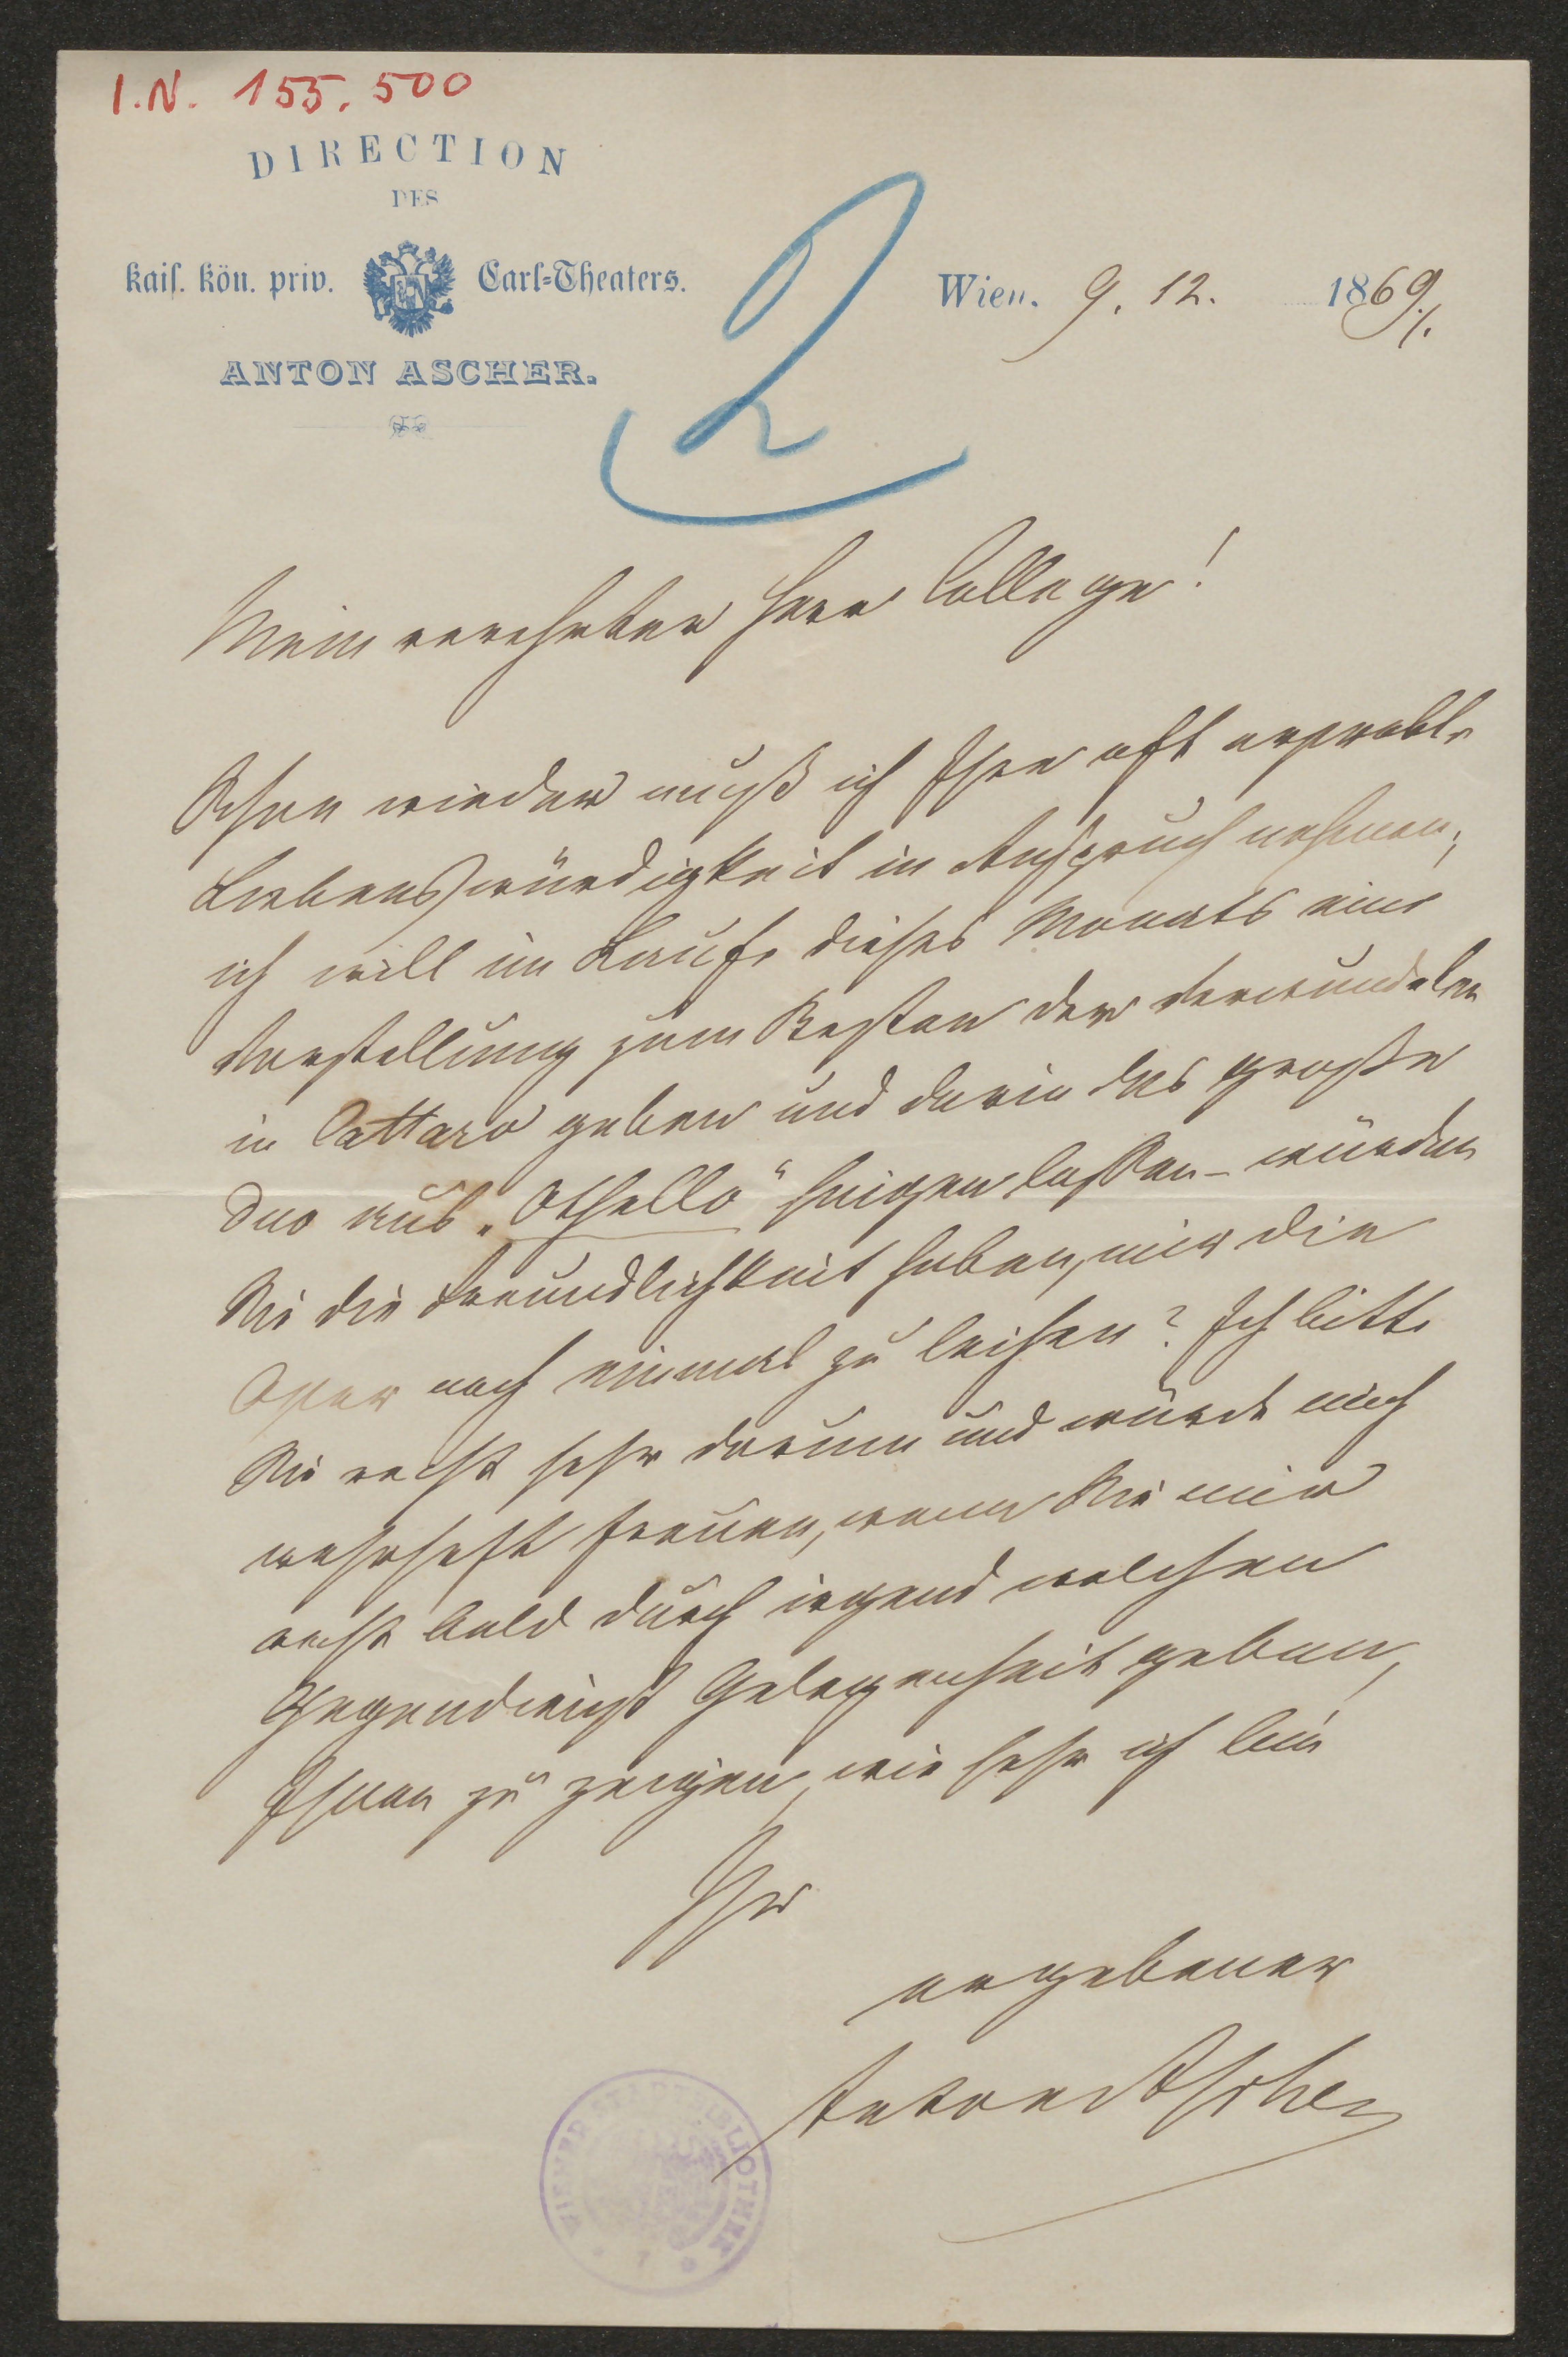 I.N. 155.500
DIRECTION
DES
kais. kön. priv. Carl-Theaters.
ANTON ASCHER.
Wien. 9. 12. 1869/.
2
Mein verehrter Herr College!
Schon wieder muß ich Ihre oft erprobte
Liebenswürdigkeit in Anspruch nehmen;
ich will im Laufe dieses Monats eine
Vorstellung zum Besten der Verwundeten
in Cattaro geben und darin das große
Duo aus „Othello“ singen lassen – würden
Sie die Freundlichkeit haben, mir die
Oper noch einmal zu leihen? Ich bitte
Sie recht sehr darum und würde mich
wahrhaft freuen, wenn Sie mir
recht bald durch irgend welchen
Gegendienst Gelegenheit geben,
Ihnen zu zeigen, wie sehr ich bin
Ihr
ergebener
Anton Ascher
WIENER STADTBIBLIOTHEK